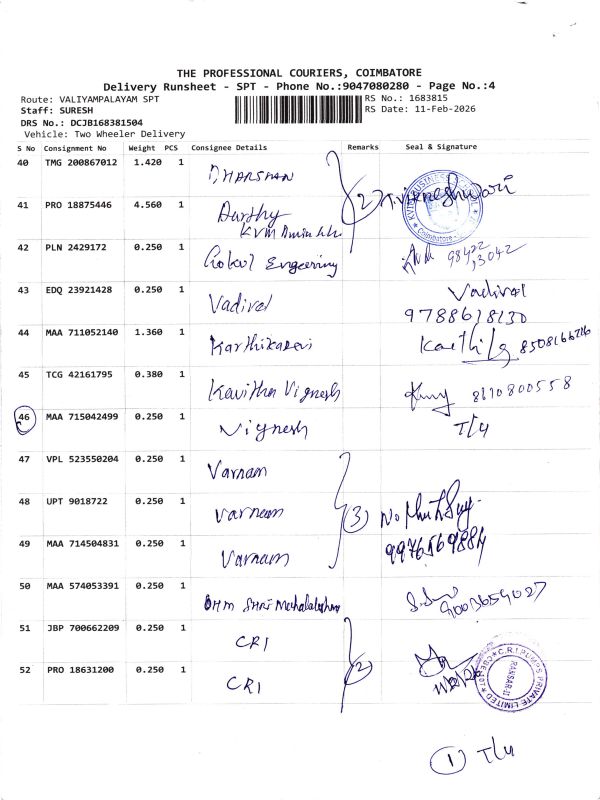 THE PROFESSIONAL COURIERS, COIMBATORE
Delivery Runsheet - SPT - Phone No.:9047080280 - Page No.:4
Route: VALIYAMPALAYAM SPT
RS No.: 1683815
Staff: SURESH
RS Date: 11-Feb-2026
DRS No.: DCJB168381504
Vehicle: Two Wheeler Delivery
S No Consignment No Weight PCS Consignee Details Remarks Seal & Signature
40 TMG 200867012 1.420 1 DHARSHAN
41 PRO 18875446 4.560 1 (2) T.Vikneshwari
KVM
42 PLN 2429172 0.250 1 Gokul Engeering
43 EDQ 23921428 0.250 1 Vadivel Vadivel
9788618130
44 MAA 711052140 1.360 1 8508166216
45 TCG 42161795 0.380 1 Kavitha Vignesh 8610800558
46 MAA 715042499 0.250 1 Vignesh T/4
47 VPL 523550204 0.250 1 Varnam
48 UPT 9018722 0.250 1 Varnam (3)
49 MAA 714504831 0.250 1 Varnam 9976569884
50 MAA 574053391 0.250 1 OHM SHRI Mahalakshmi 9003659027
51 JBP 700662209 0.250 1 CRI
(2)
52 PRO 18631200 0.250 1 CRI
C.R.I. PUMPS PRIVATE LIMITED
(1) T/4